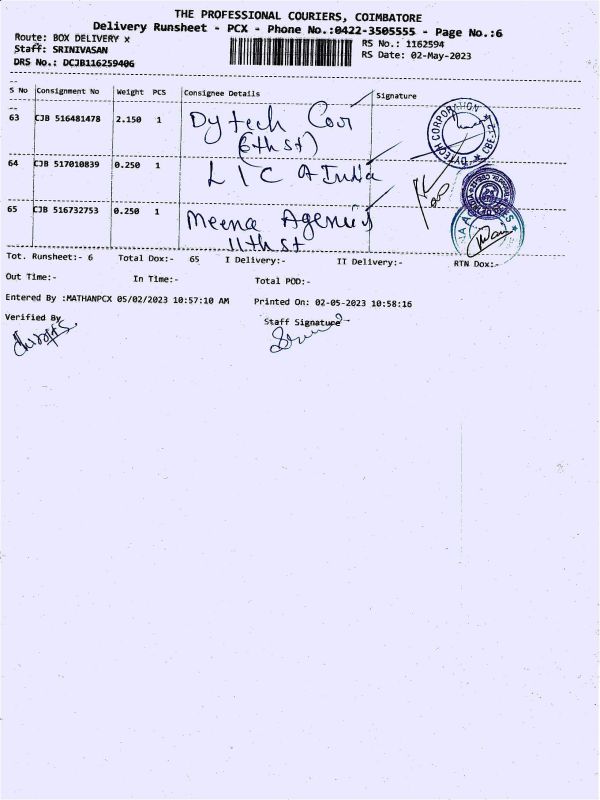 THE PROFESSIONAL COURIERS, COIMBATORE
Delivery Runsheet - PCX - Phone No.:0422-3505555 - Page No.:6
Route: BOX DELIVERY x RS No.: 1162594
Staff: SRINIVASAN RS Date: 02-May-2023
DRS No.: DCJB116259406
S No Consignment No Weight PCS Consignee Details Signature
63 CJB 516481478 2.150 1 Dytech Cor
(6th st)
DYTECH CORPORATION CBE-12
64 CJB 517010839 0.250 1 LIC of India
65 CJB 516732753 0.250 1 Meena Agencies
11th st
Tot. Runsheet:- 6 Total Dox:- 65 I Delivery:- II Delivery:- RTN Dox:-
Out Time:- In Time:- Total POD:-
Entered By :MATHANPCX 05/02/2023 10:57:10 AM Printed On: 02-05-2023 10:58:16
Verified By Staff Signature